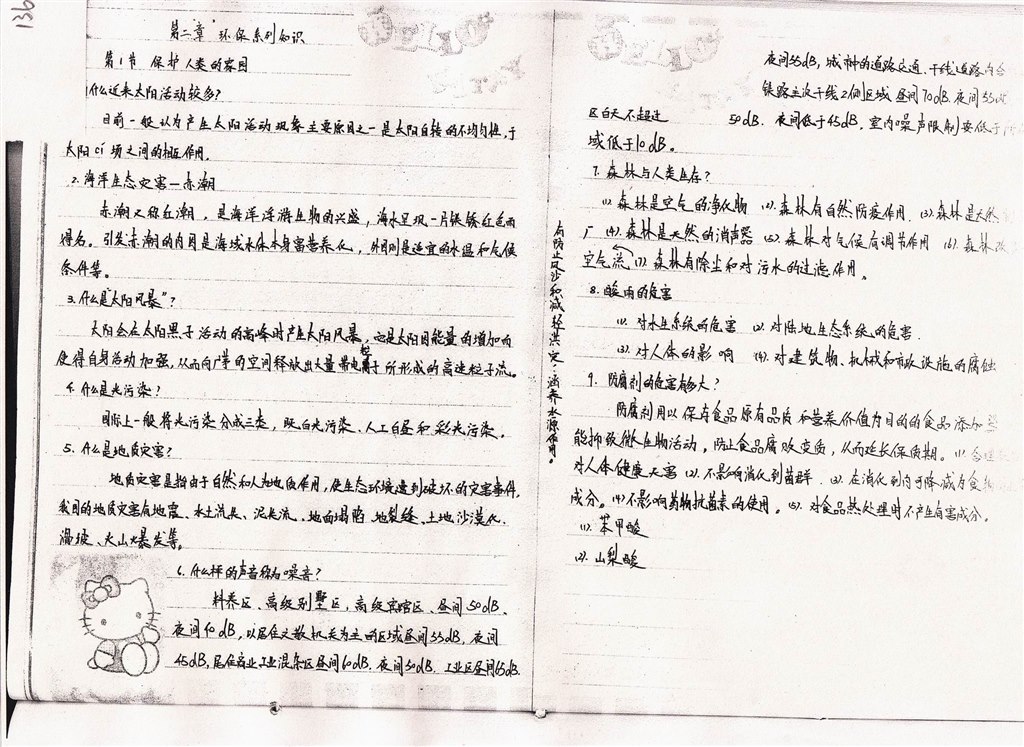 136
第二章 环保系列知识
第1节 保护人类的家园
什么近来太阳活动较多?
目前一般认为产生太阳活动现象主要原因之一是太阳自转的不均匀性,于
太阳ci场之间的相互作用。
2. 海洋生态灾害—赤潮
赤潮又称红潮,是海洋浮游生物的兴盛,海水呈现一片铁锈红色而
得名。引发赤潮的内因是海域水体本身富营养化,外因则是适宜的水温和气候
条件等。
3. 什么是"太阳风暴"?
太阳会在太阳黑子活动的高峰时产生太阳风暴,它是太阳因能量的增加而
使得自身活动加强,从而向广羊的空间释放出大量带电粒子所形成的高速粒子流。
4. 什么是光污染?
国际上一般将光污染分成三类,既白光污染、人工白昼和彩光污染。
5. 什么是地质灾害?
地质灾害是指由于自然和人为地质作用,使生态环境遭到破坏的灾害事件,
我国的地质灾害有地震、水土流失、泥石流、地面塌陷、地裂缝、土地沙漠化、
滑坡、火山爆发等。
6. 什么样的声音称为噪音?
料养区、高级别墅区,高级宾馆区、昼间50dB、
夜间40dB,以居住文教机关为主的区域昼间55dB,夜间
45dB,居住商业工业混杂区昼间60dB.夜间50dB.工业区昼间65dB.
有防止风沙和减轻洪灾、涵养水源作用。
夜间55dB,城市中的道路交通、干线道路内合
铁路主次干线2侧区域 昼间70dB.夜间55dB
区白天不超过 50dB.夜间低于45dB,室内噪声限制要低于
域低于10dB。
7. 森林与人类生存?
(1).森林是空气的净化物 (2).森林有自然防疫作用 (3).森林是天然
厂 (4).森林是天然的消声器 (5).森林对气候有调节作用 (6).森林改
空气流 (7).森林有除尘和对污水的过滤作用。
8. 酸雨的危害
(1).对水生系统的危害 (2).对陆地生态系统的危害.
(3).对人体的影响 (4).对建筑物、机械和市政设施的腐蚀
9. 防腐剂的危害有多大?
防腐剂用以保存食品原有品质和营养价值为目的的食品添加
能抑致微生物活动,防止食品腐败变质,从而延长保质期。(1).合
对人体健康无害 (2).不影响消化到菌群.(3).在消化到内可降减为食
成分。(4)不影响药物抗菌素的使用。(5).对食品热处理时不产生有害成分。
(1).苯甲酸
(2).山梨酸